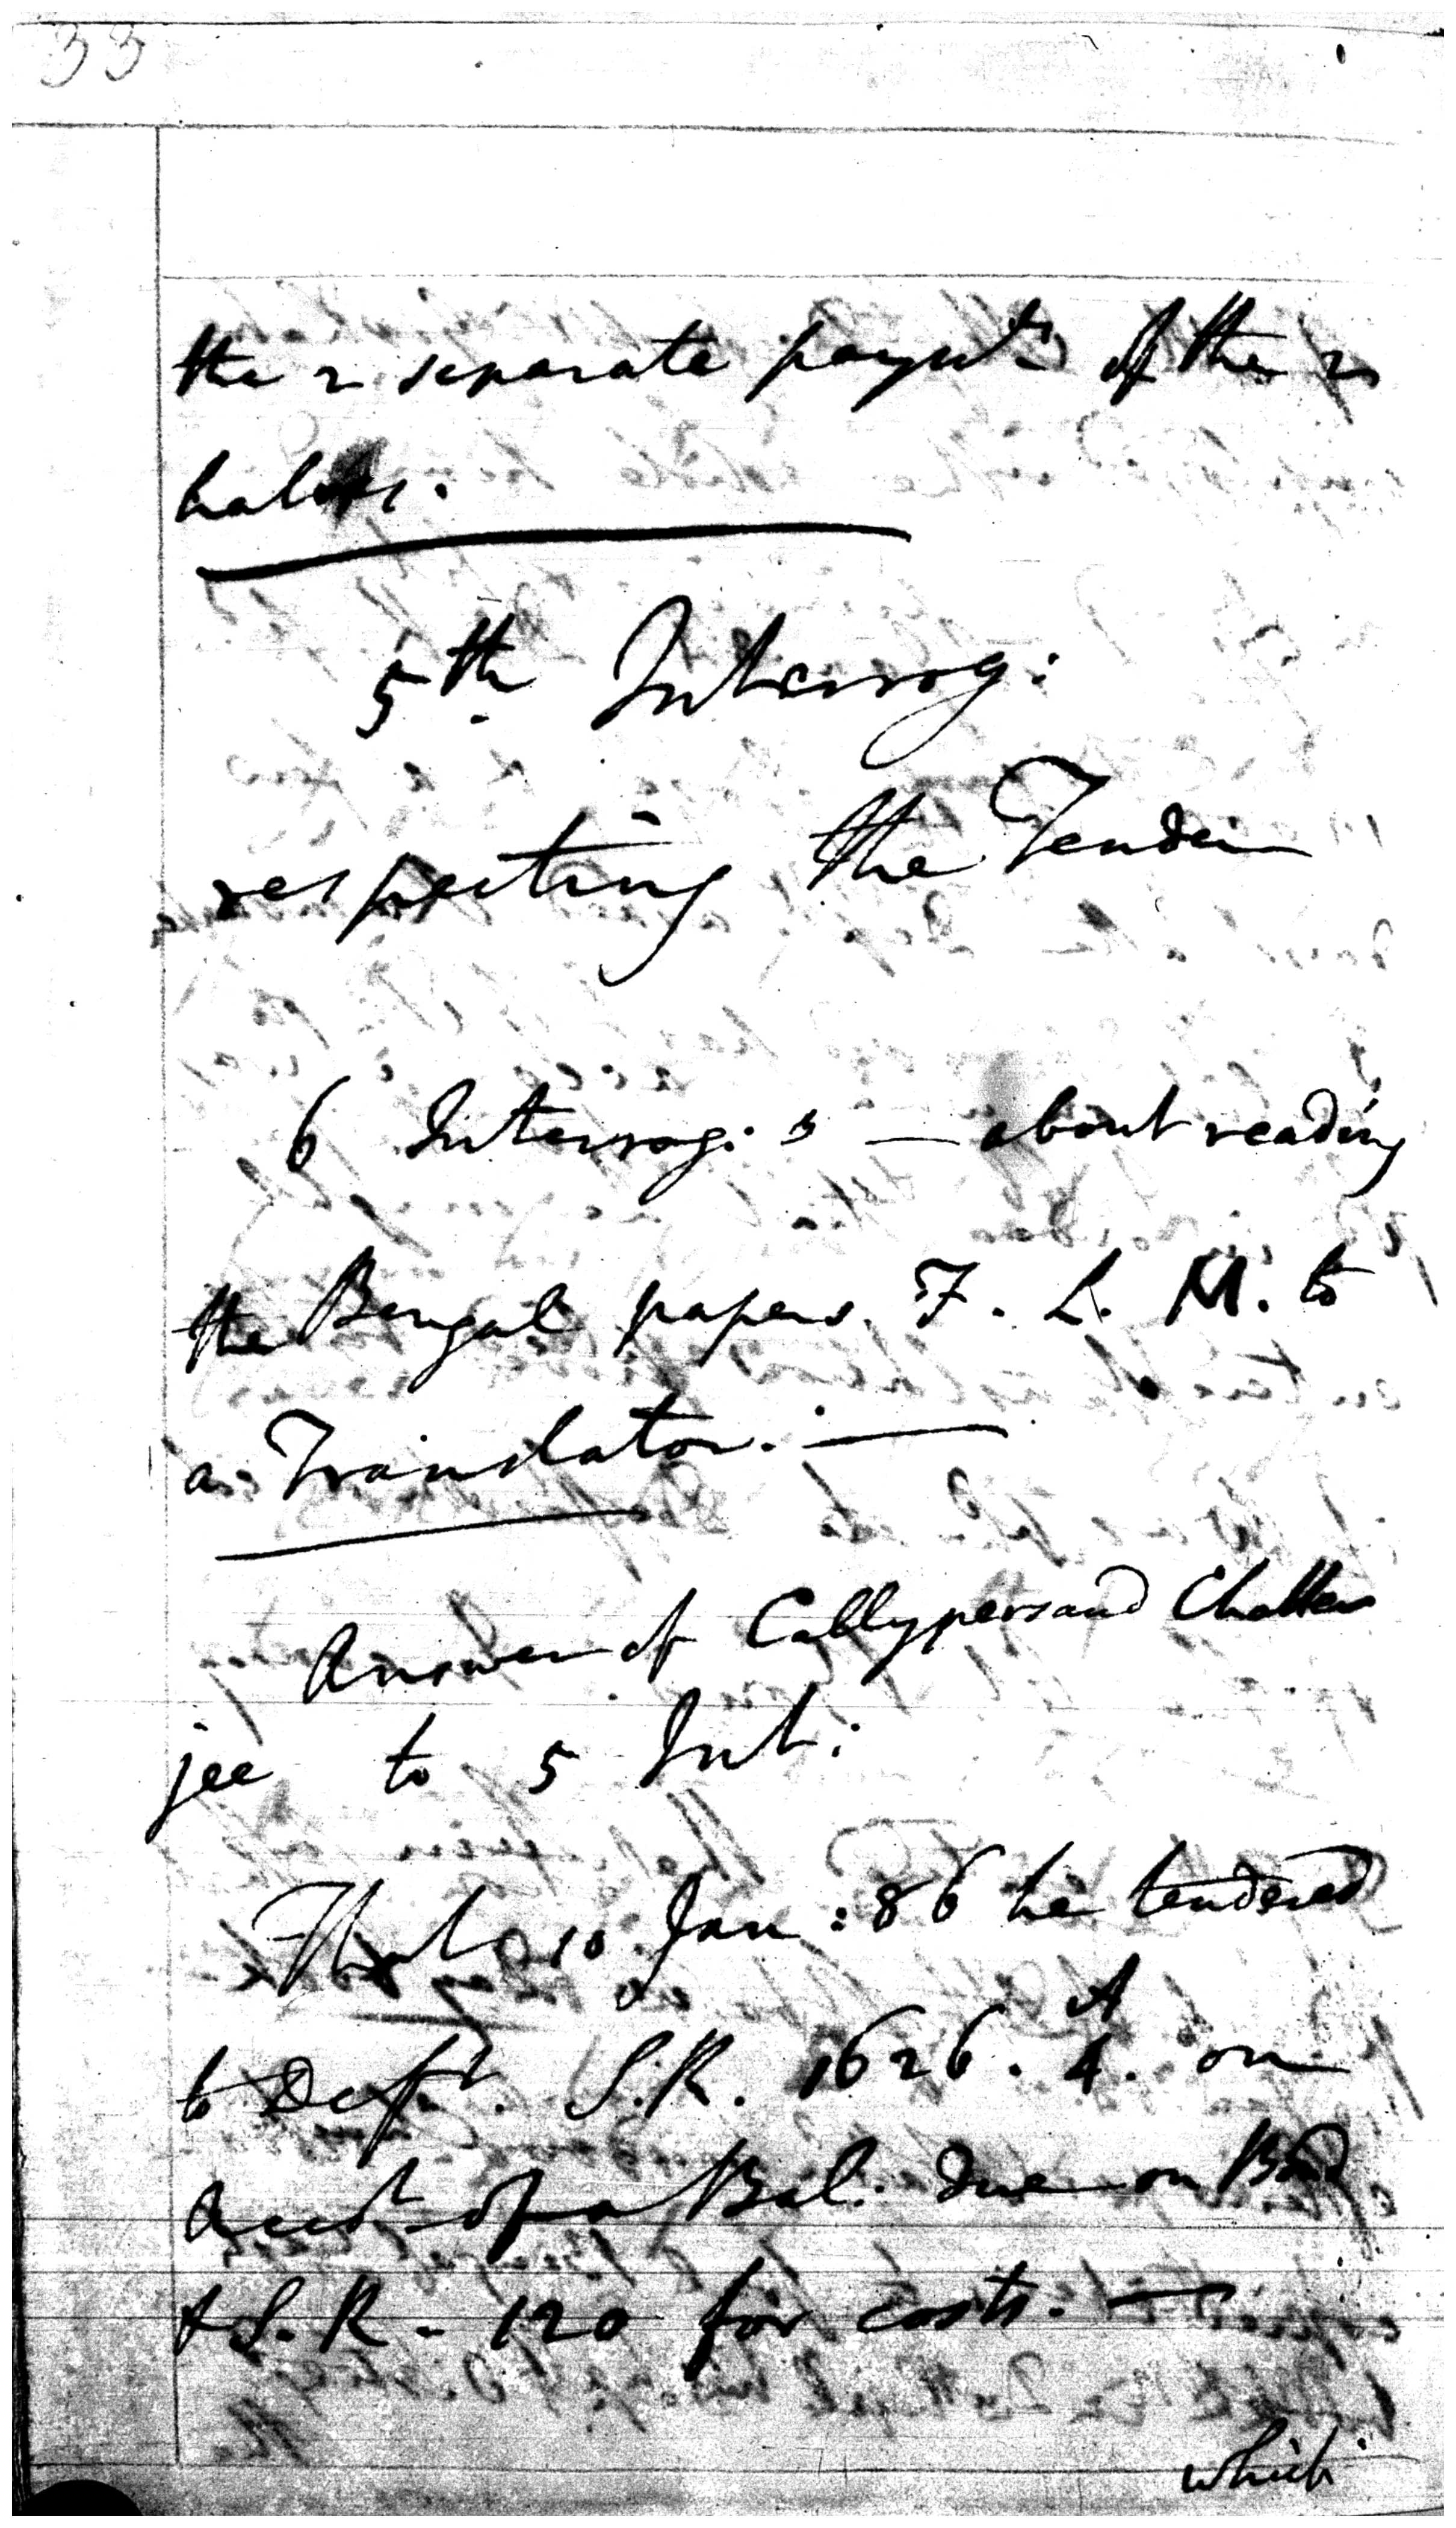 33
the 2 separate paymts of the 2
halves.
5th Interrog:
respecting the Tender
6 Interrog: s — about reading
the Bengal papers. F. L. M. to
a Translator. —
Answer of Callypersaud Chatter
jee to 5 Int:
That 10 Jan: 86 he tendered
to Deft. S.R. 1626. A 4. on
Acct of a Bal. due on Bond
& S. R. 120 for costs. —
which